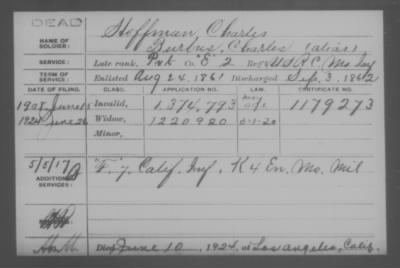 DEAD
NAME OF SOLDIER:
Hoffman, Charles
Burbus, Charles (alias)
SERVICE:
Late rank, Pvt Co. "E" 2 Reg't U.S.R.C. Mo. Inf
TERM OF SERVICE:
Enlisted Aug 24, 1861 Discharged Sep. 3, 1862
DATE OF FILING. CLASS. APPLICATION NO. LAW. CERTIFICATE NO.
1908 June 15 Invalid, 1.374,793 1179273
1924 June 26 Widow, 1220920 5-1-20
Minor,
5/5/17
ADDITIONAL SERVICES:
"F" 7. Calif. Inf. K 4 En. Mo. Mil
Died June 10, 1924, at Los Angeles, Calif.